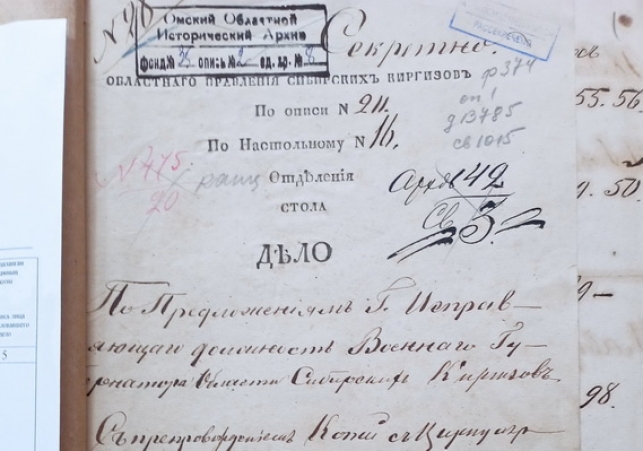 № 28
Омскій Областной
Историческiй Архив
фонд № 3 опись № 2 ед. хр. № 8
Секретно.
ОБЛАСТНАГО ПРАВЛЕНІЯ СИБИРСКИХЪ КИРГИЗОВЪ
ф 374
оп 1
д 13785
св 1015
По описи N 211.
По Настольному N 16.
N 475
20
Отдѣленія
СТОЛА
Архв 142
Св 3.
ДѢЛО
По Предложеніямъ Г. Исправ–
ляющаго должность Военнаго Гу–
бернатора Области Сибирскихъ Киргизовъ
Съ препровожденіемъ Копіи съ Циркуляр
55. 56.
9. 50.
9–
98.
5